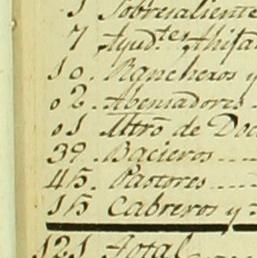 1 Sobresaliente
7 Ayud.tes
10. Rancheros y
02. Abensadores
01 Mtro de Doc
39. Bacieros
45. Pastores
15 Cabreros y
121 Total